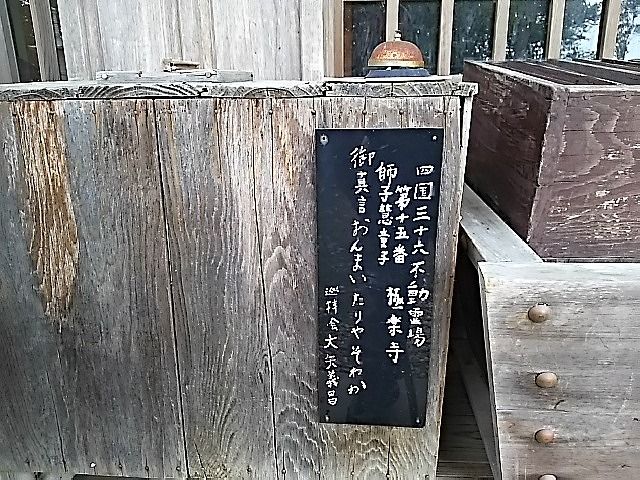 四国三十六不動霊場
第十五番 極楽寺
師子慧童子
御真言おんまいたりやそわか
巡拝会大矢義昌